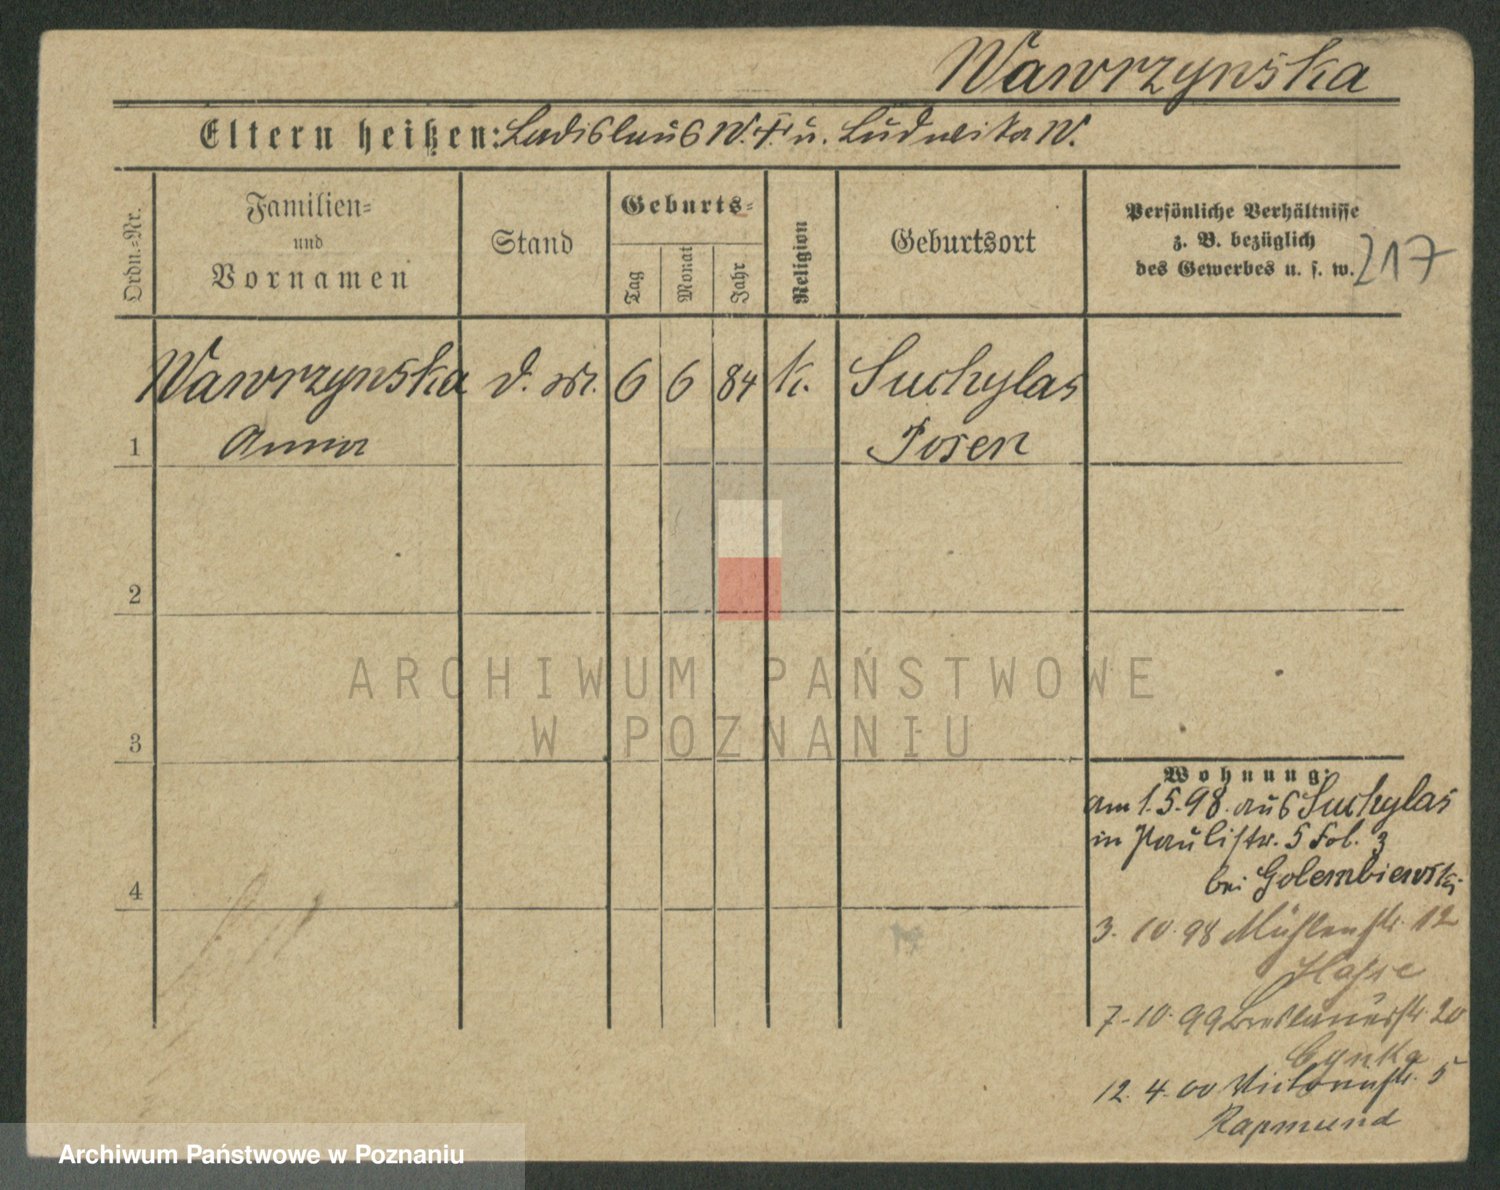 Wawrzynska
Eltern heißen: Ladislaus W. † u. Ludwika W.
Ordn.-Nr.
Familien-
und
Vornamen
Stand
Geburts-
Tag
Monat
Jahr
Religion
Geburtsort
Persönliche Verhältnisse
z. B. bezüglich
des Gewerbes u. s. w.
217
Wawrzynska d. M. 6 6 84 k. Suchylas
1 Anna Posen
2
3
4
Wohnung:
am 1.5.98. aus Suchylas
in Paulistr. 5 Fol. 3
bei Golembiewski
3. 10. 98 Mühlenstr. 12
Hasse
7. 10. 99 Breslauerstr. 20
Cynka
12. 4. 00 Victoriastr. 5
Rapmund
ARCHIWUM PAŃSTWOWE
W POZNANIU
Archiwum Państwowe w Poznaniu